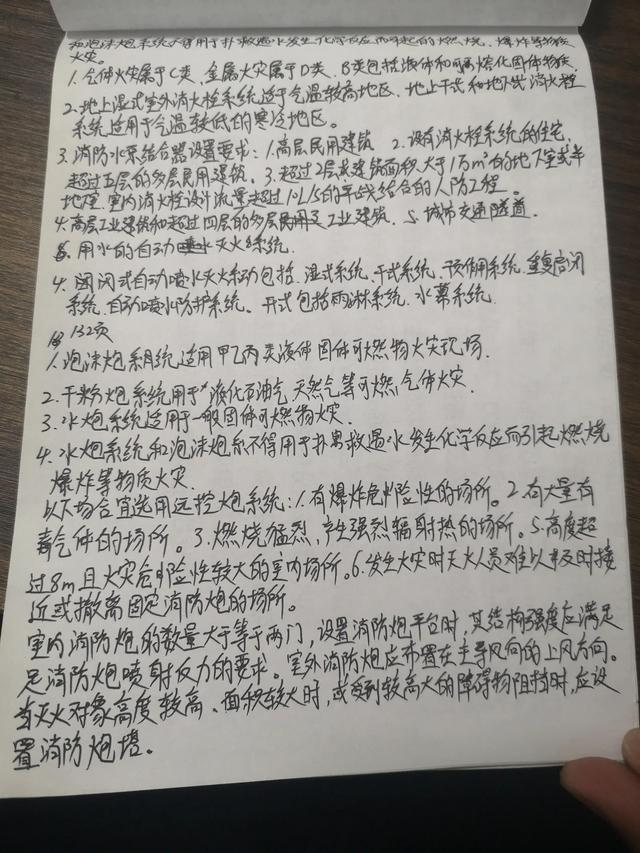 和泡沫炮系统不得用于扑救遇水发生化学反应而引起的燃烧、爆炸等物质
火灾。
1. 气体火灾属于C类、金属火灾属于D类、B类包括液体和可熔化固体物质
2. 地上湿式室外消火栓系统适于气温较高地区、地上干式和地下式消火栓
系统适用于气温较低的寒冷地区。
3. 消防水泵结合器设置要求：1. 高层民用建筑 2. 设有消火栓系统的住宅，
超过五层的多层民用建筑、3. 超过2层或建筑面积大于1万m²的地下室或半
地下室、室内消火栓设计流量超过10L/S的平战结合的人防工程。
4. 高层工业建筑和超过四层的多层工业建筑、5. 城市交通隧道
6. 用水的自动灭火系统.
4. 闭式自动喷水灭火系统包括、湿式系统、干式系统、预作用系统、重复启闭
系统、自动喷水防护系统。开式包括雨淋系统、水幕系统.
132页
1. 泡沫炮系统适用甲乙丙类液体固体可燃物火灾现场.
2. 干粉炮系统用于液化石油气 天然气等可燃气体火灾.
3. 水炮系统适用于一般固体可燃物火灾.
4. 水炮系统和泡沫炮系不得用于扑救遇水发生化学反应而引起燃烧
爆炸等物质火灾.
以下场合宜选用远控炮系统：1. 有爆炸危险性的场所。2. 有大量有
毒气体的场所。3. 燃烧猛烈，产生强烈辐射热的场所。5. 高度超
过8m且火灾危险性较大的室内场所。6. 发生火灾时灭火人员难以及时接
近或撤离固定消防炮的场所。
室内消防炮的数量大于等于两门，设置消防炮平台时，其结构强度应满足
足消防炮喷射反力的要求。室外消防炮应布置在主导风向的上风方向。
当灭火对象高度较高、面积较大时，或受到较高大的障碍物阻挡时，应设
置消防炮塔。